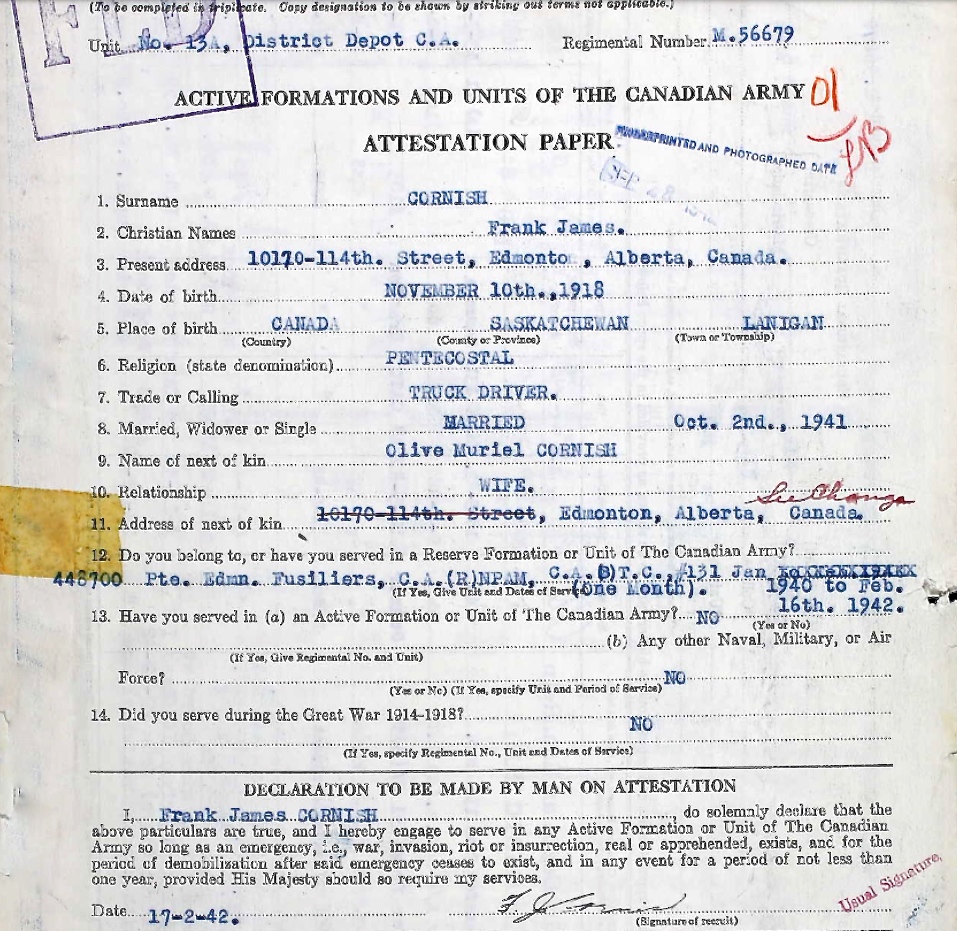 (To be completed in triplicate. Copy designation to be shown by striking out terms not applicable.)
Unit No. 13A, District Depot C.A. Regimental Number M.56679
ACTIVE FORMATIONS AND UNITS OF THE CANADIAN ARMY 01
ATTESTATION PAPER
FINGERPRINTED AND PHOTOGRAPHED DATE
SEP 28
1. Surname CORNISH
2. Christian Names Frank James.
3. Present address 10170-114th. Street, Edmonto , Alberta, Canada.
4. Date of birth NOVEMBER 10th.,1918
5. Place of birth CANADA SASKATCHEWAN LANIGAN
(Country) (County or Province) (Town or Township)
6. Religion (state denomination) PENTECOSTAL
7. Trade or Calling TRUCK DRIVER.
8. Married, Widower or Single MARRIED Oct. 2nd., 1941
9. Name of next of kin Olive Muriel CORNISH
10. Relationship WIFE.
See Change
11. Address of next of kin 10170-114th. Street, Edmonton, Alberta, Canada.
12. Do you belong to, or have you served in a Reserve Formation or Unit of The Canadian Army?
448700 Pte. Edmn. Fusiliers, C.A.(R)NPAM, C.A.(B)T.C.,#131 Jan
(If Yes, Give Unit and Dates of Service) (One Month). 1940 to Feb.
16th. 1942.
13. Have you served in (a) an Active Formation or Unit of The Canadian Army? NO
(Yes or No)
(b) Any other Naval, Military, or Air
(If Yes, Give Regimental No. and Unit)
Force? NO
(Yes or No) (If Yes, specify Unit and Period of Service)
14. Did you serve during the Great War 1914-1918? NO
(If Yes, specify Regimental No., Unit and Dates of Service)
DECLARATION TO BE MADE BY MAN ON ATTESTATION
I, Frank James CORNISH, do solemnly declare that the
above particulars are true, and I hereby engage to serve in any Active Formation or Unit of The Canadian
Army so long as an emergency, i.e., war, invasion, riot or insurrection, real or apprehended, exists, and for the
period of demobilization after said emergency ceases to exist, and in any event for a period of not less than
one year, provided His Majesty should so require my services.
Usual Signature.
Date 17-2-42. F J Cornish
(Signature of recruit)